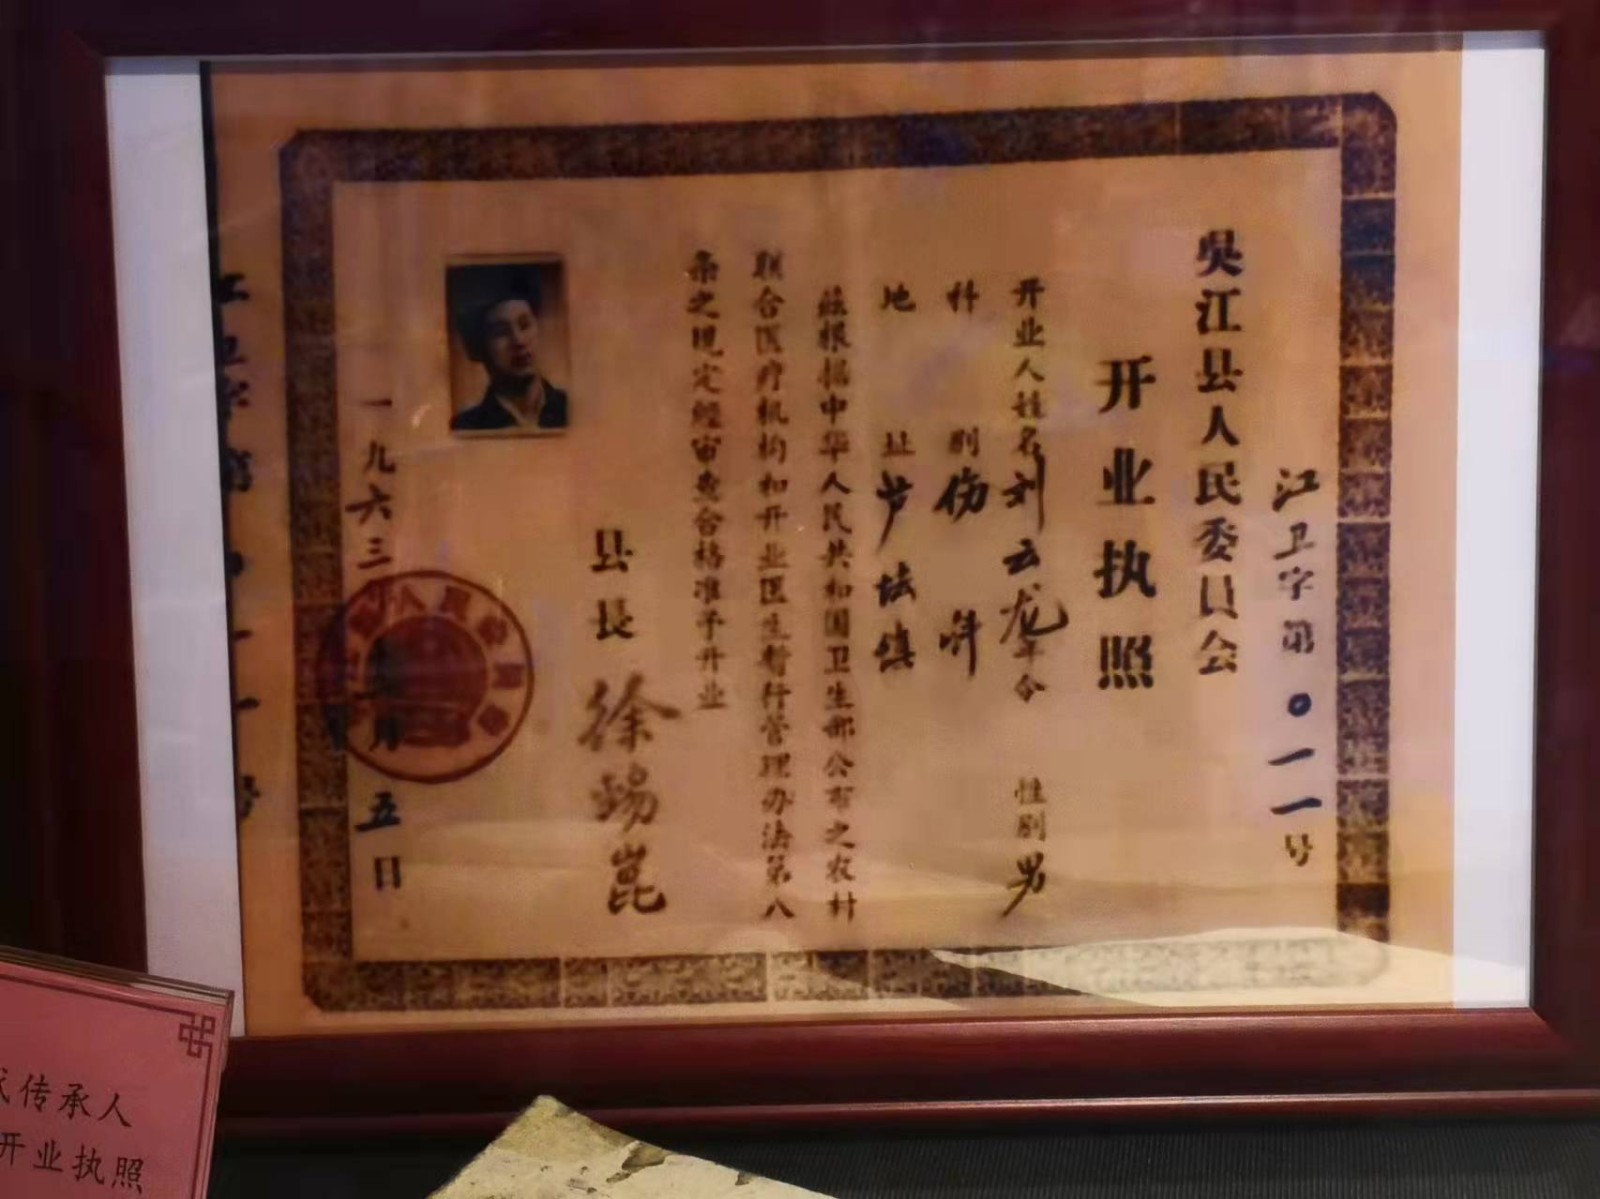 江卫字第〇一一号
吳江县人民委員会
开业执照
开业人姓名刘云龙年令 性别男
科别伤科
地址芦墟镇
茲根据中华人民共和国卫生部公布之农村
联合医疗机构和开业医生暂行管理办法第八
条之规定經审查合格准予开业
县長徐

一九六三年 月五日
江卫字第〇一一号
传承人
开业执照